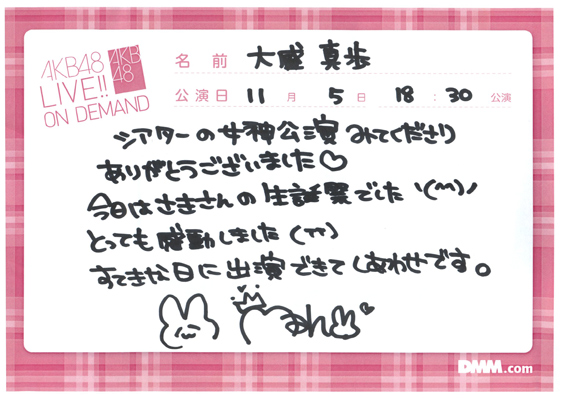 AKB48
LIVE!!
ON DEMAND
AKB
48
名前 大盛 真歩
公演日 11月 5日 18:30 公演
シアターの女神公演 みてくださり
ありがとうございました♡
今日はさきさんの生誕祭でした\(^^)/
とっても感動しました(TT)
すてきな日に出演できてしあわせです。
DMM.com